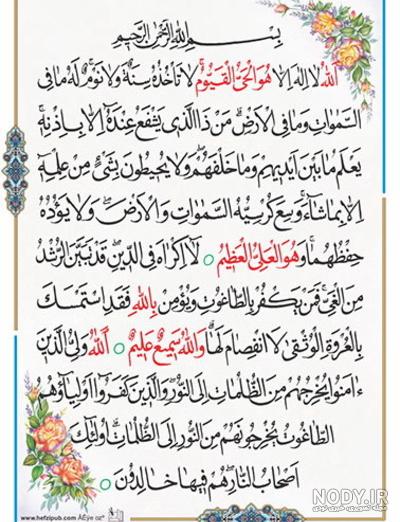 بِسْمِ اللهِ الرَّحْمٰنِ الرَّحِيمِ
اَللهُ لَا اِلٰهَ اِلَّا هُوَ الْحَيُّ الْقَيُّومُ لَا تَأْخُذُهُ سِنَةٌ وَلَا نَوْمٌ لَهُ مَا فِى
السَّمٰوَاتِ وَمَا فِى الْاَرْضِ مَنْ ذَا الَّذِى يَشْفَعُ عِنْدَهُ اِلَّا بِاِذْنِهِ
يَعْلَمُ مَا بَيْنَ اَيْدِيهِمْ وَمَا خَلْفَهُمْ وَلَا يُحِيطُونَ بِشَىْءٍ مِنْ عِلْمِهِ
اِلَّا بِمَا شَاءَ وَسِعَ كُرْسِيُّهُ السَّمٰوَاتِ وَالْاَرْضَ وَلَا يَؤُدُهُ
حِفْظُهُمَا وَهُوَ الْعَلِىُّ الْعَظِيمُ ○ لَا اِكْرَاهَ فِى الدِّينِ قَدْ تَبَيَّنَ الرُّشْدُ
مِنَ الْغَىِّ فَمَنْ يَكْفُرْ بِالطَّاغُوتِ وَيُؤْمِنْ بِاللهِ فَقَدِ اسْتَمْسَكَ
بِالْعُرْوَةِ الْوُثْقٰى لَا انْفِصَامَ لَهَا وَاللهُ سَمِيعٌ عَلِيمٌ ○ اَللهُ وَلِىُّ الَّذِينَ
ءَامَنُوا يُخْرِجُهُمْ مِنَ الظُّلُمَاتِ اِلَى النُّورِ وَالَّذِينَ كَفَرُوا اَوْلِيَاؤُهُمُ
الطَّاغُوتُ يُخْرِجُونَهُمْ مِنَ النُّورِ اِلَى الظُّلُمَاتِ اُولٰئِكَ
اَصْحَابُ النَّارِ هُمْ فِيهَا خَالِدُونَ ○
www.hefzipub.com
NODY.IR